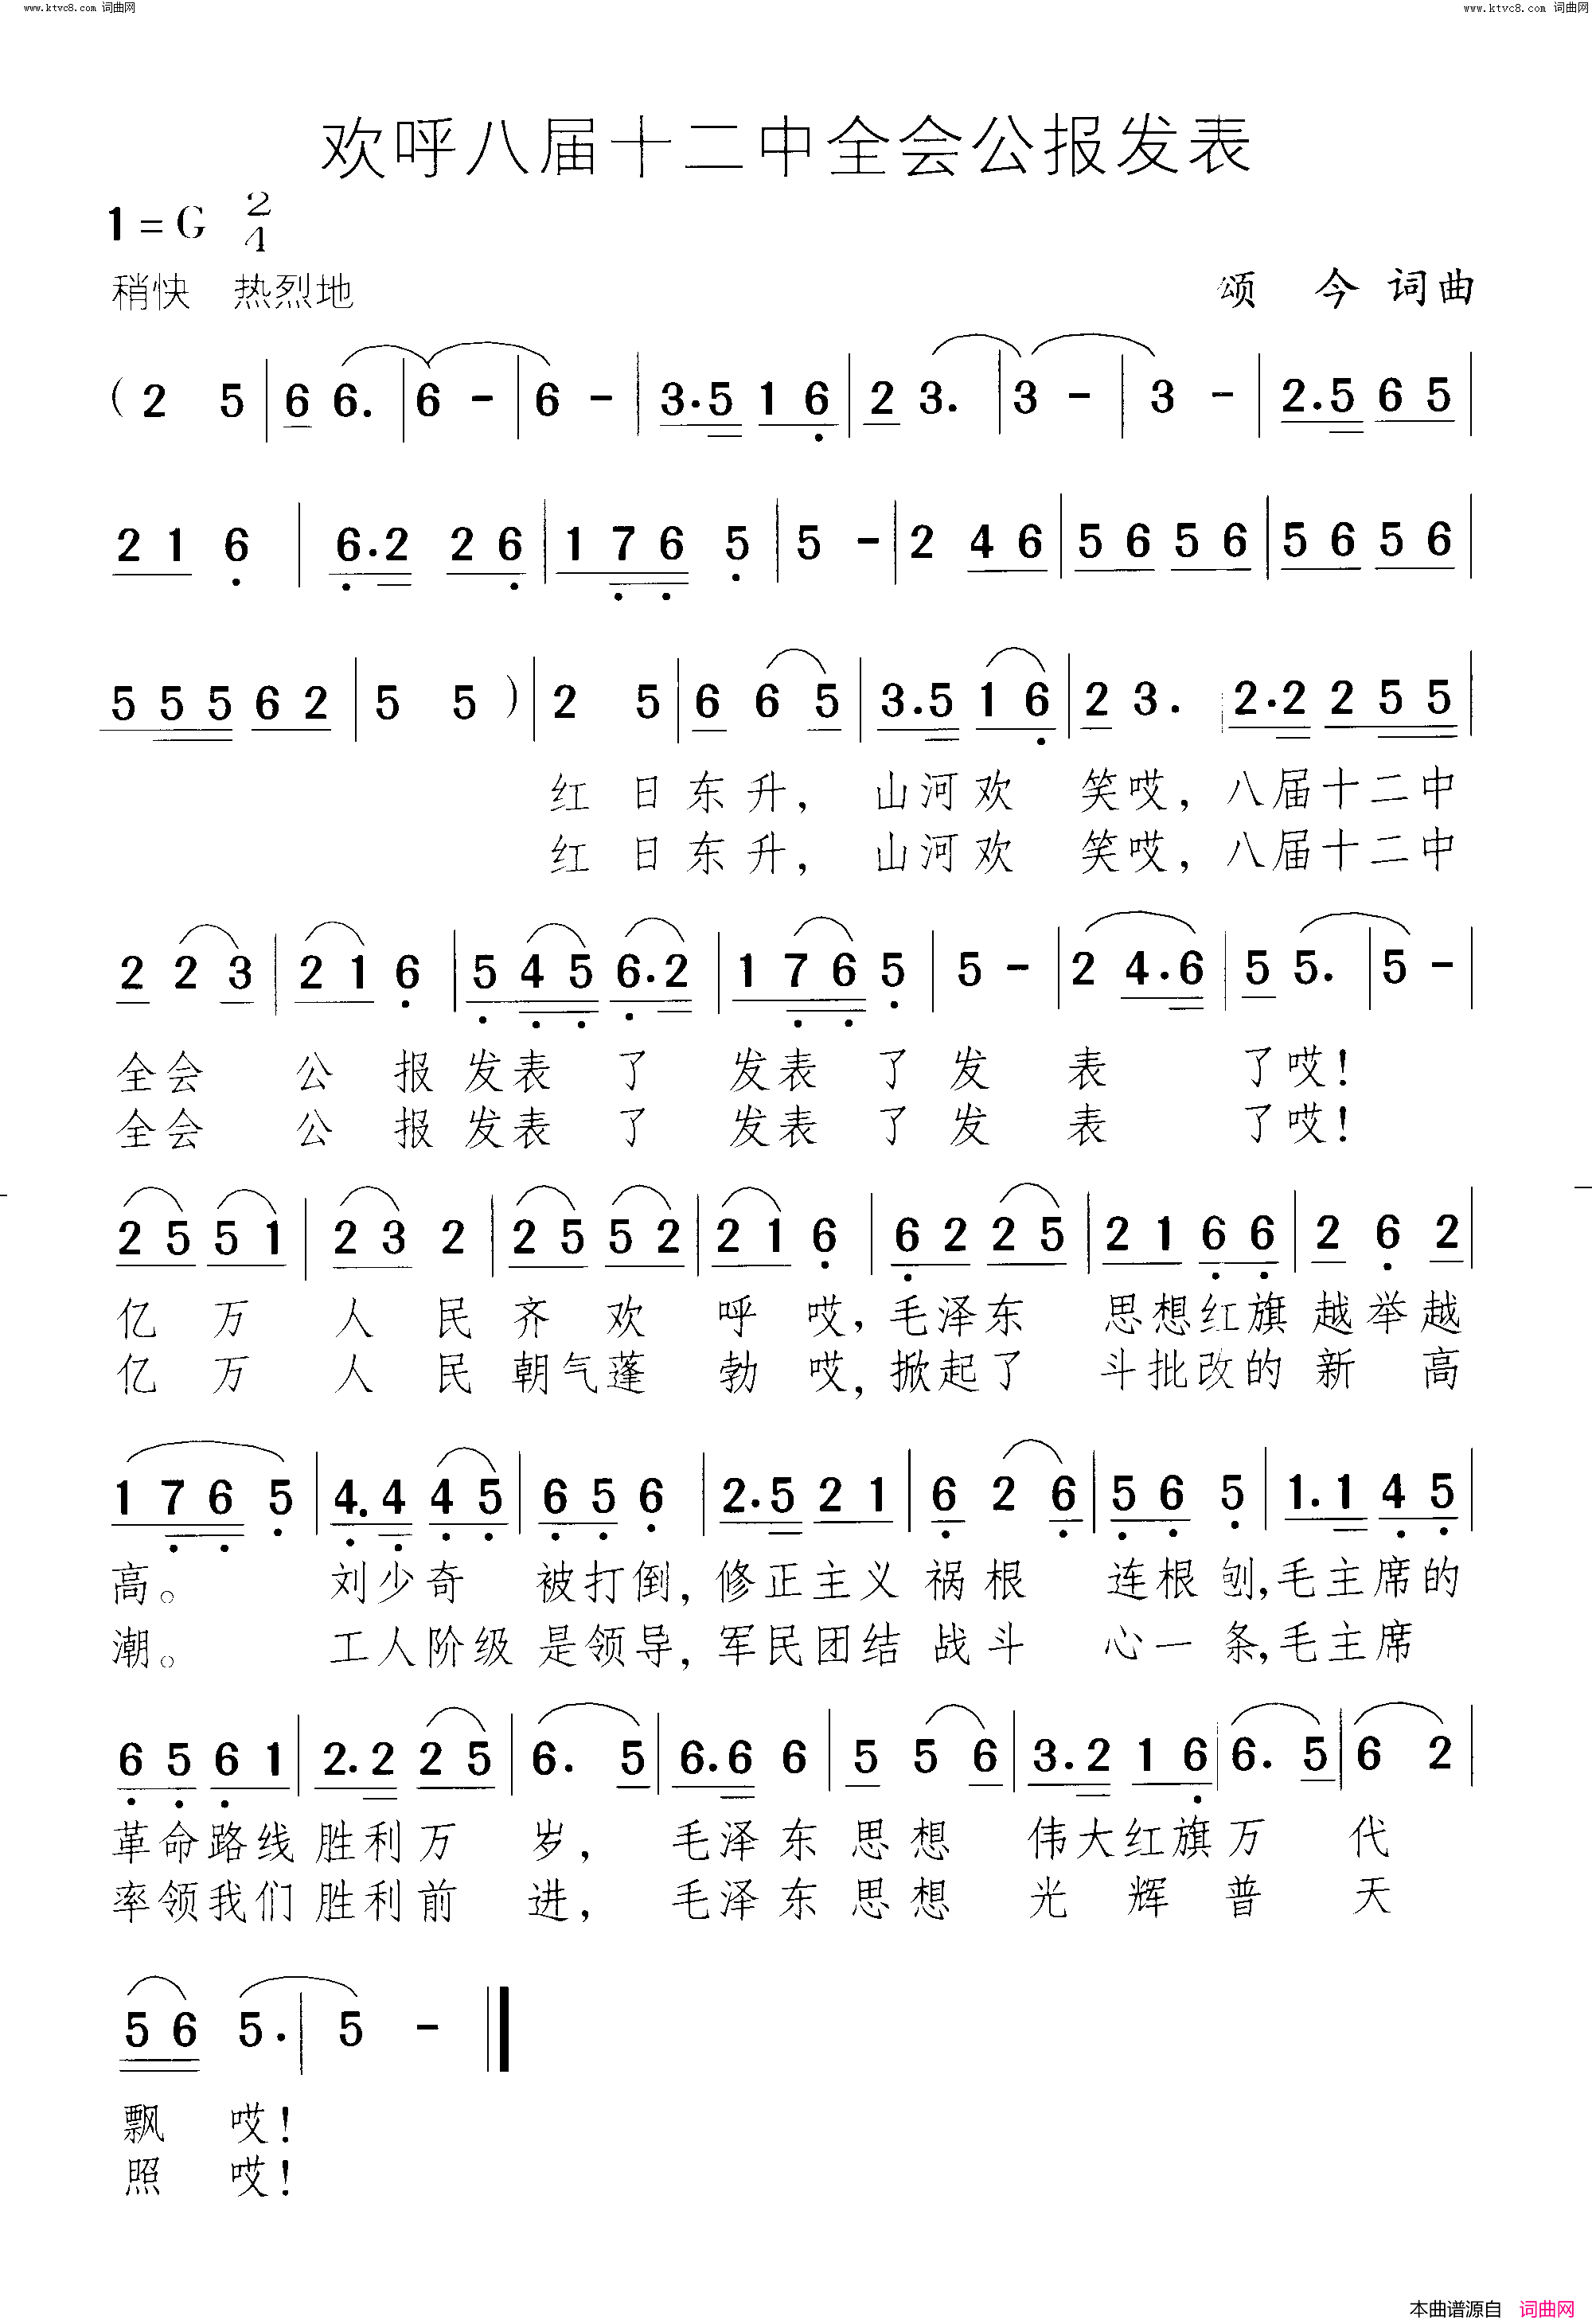 www.ktvc8.com 词曲网 www.ktvc8.com 词曲网
欢呼八届十二中全会公报发表
1 = G 2/4
稍快 热烈地 颂 今 词曲
( 2 5 | 6 6. | 6 - | 6 - | 3.5 1 6 | 2 3. | 3 - | 3 - | 2.5 6 5 |
2 1 6 | 6.2 2 6 | 1 7 6 5 | 5 - | 2 4 6 | 5 6 5 6 | 5 6 5 6 |
5 5 5 6 2 | 5 5 ) | 2 5 | 6 6 5 | 3.5 1 6 | 2 3. | 2.2 2 5 5 |
红 日 东 升, 山 河 欢 笑 哎, 八 届 十 二 中
红 日 东 升, 山 河 欢 笑 哎, 八 届 十 二 中
2 2 3 | 2 1 6 | 5 4 5 6.2 | 1 7 6 5 | 5 - | 2 4.6 | 5 5. | 5 - |
全 会 公 报 发 表 了 发 表 了 发 表 了 哎!
全 会 公 报 发 表 了 发 表 了 发 表 了 哎!
2 5 5 1 | 2 3 2 | 2 5 5 2 | 2 1 6 | 6 2 2 5 | 2 1 6 6 | 2 6 2 |
亿 万 人 民 齐 欢 呼 哎, 毛 泽 东 思 想 红 旗 越 举 越
亿 万 人 民 朝 气 蓬 勃 哎, 掀 起 了 斗 批 改 的 新 高
1 7 6 5 | 4.4 4 5 | 6 5 6 | 2.5 2 1 | 6 2 6 | 5 6 5 | 1.1 4 5 |
高。 刘 少 奇 被 打 倒, 修 正 主 义 祸 根 连 根 刨, 毛 主 席 的
潮。 工 人 阶 级 是 领 导, 军 民 团 结 战 斗 心 一 条, 毛 主 席
6 5 6 1 | 2.2 2 5 | 6. 5 | 6.6 6 | 5 5 6 | 3.2 1 6 | 6. 5 | 6 2 |
革 命 路 线 胜 利 万 岁, 毛 泽 东 思 想 伟 大 红 旗 万 代
率 领 我 们 胜 利 前 进, 毛 泽 东 思 想 光 辉 普 天
5 6 5. | 5 - ‖
飘 哎!
照 哎!
本曲谱源自 词曲网